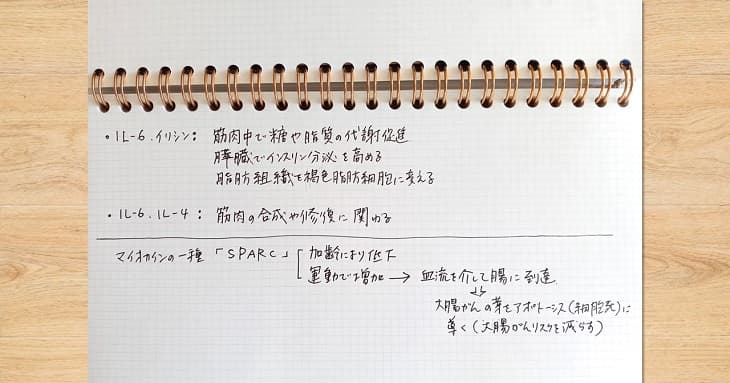 ・IL-6.イリシン： 筋肉中で糖や脂質の代謝促進
膵臓でインスリン分泌を高める
脂肪組織を褐色脂肪細胞に変える
・IL-6.IL-4： 筋肉の合成や修復に関わる
マイオカインの一種「SPARC」 加齢により低下
運動で増加 → 血流を介して腸に到達
↓
大腸がんの芽をアポトーシス(細胞死)に
導く(大腸がんリスクを減らす)